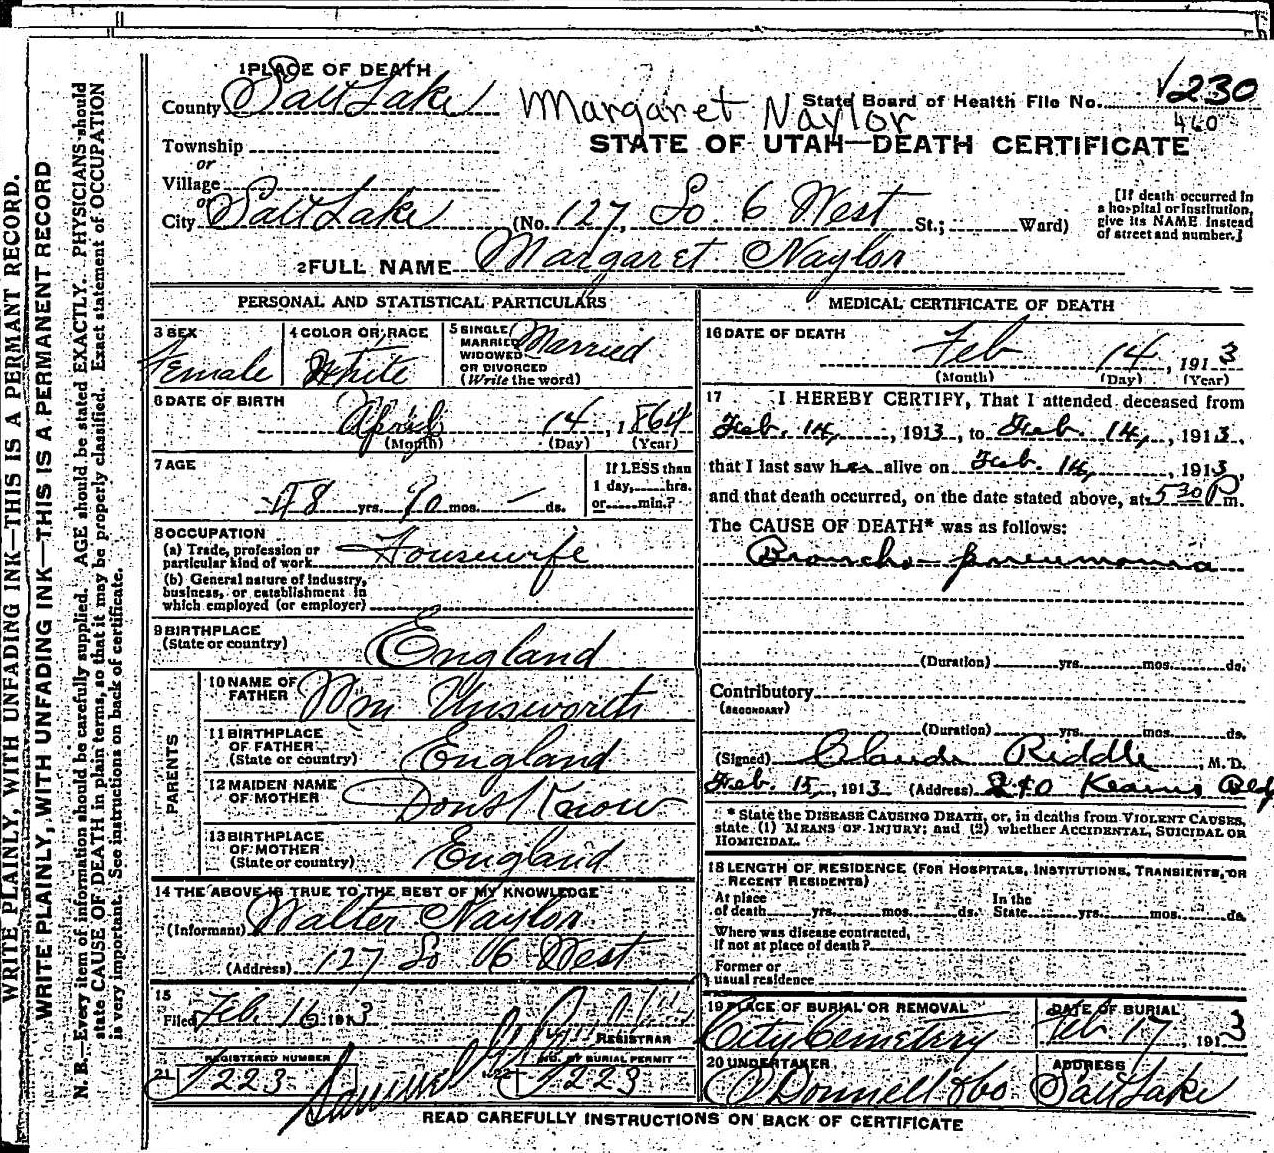 WRITE PLAINLY, WITH UNFADING INK—THIS IS A PERMANT RECORD.
WRITE PLAINLY, WITH UNFADING INK—THIS IS A PERMANENT RECORD
N. B.—Every item of information should be carefully supplied. AGE should be stated EXACTLY. PHYSICIANS should
state CAUSE OF DEATH in plain terms, so that it may be properly classified. Exact statement of OCCUPATION
is very important. See instructions on back of certificate.
1 PLACE OF DEATH
County Salt Lake
Margaret Naylor
State Board of Health File No. 230
460
STATE OF UTAH—DEATH CERTIFICATE
Township
or
Village
or
City Salt Lake (No. 127, So. 6 West St.; Ward)
[If death occurred in
a hospital or institution,
give its NAME instead
of street and number.]
2 FULL NAME Margaret Naylor
PERSONAL AND STATISTICAL PARTICULARS
3 SEX
Female
4 COLOR OR RACE
White
5 SINGLE
MARRIED
WIDOWED
OR DIVORCED
(Write the word)
Married
6 DATE OF BIRTH
April 14, 1864
(Month) (Day) (Year)
7 AGE
48 yrs. 10 mos. — ds.
If LESS than
1 day, hrs.
or min.?
8 OCCUPATION
(a) Trade, profession or
particular kind of work Housewife
(b) General nature of industry,
business, or establishment in
which employed (or employer)
9 BIRTHPLACE
(State or country) England
PARENTS
10 NAME OF
FATHER Wm Unsworth
11 BIRTHPLACE
OF FATHER
(State or country) England
12 MAIDEN NAME
OF MOTHER Dont Know
13 BIRTHPLACE
OF MOTHER
(State or country) England
14 THE ABOVE IS TRUE TO THE BEST OF MY KNOWLEDGE
(Informant) Walter Naylor
(Address) 127 So 6 West
15
Filed Feb 16 1913
REGISTRAR
21 REGISTERED NUMBER
1223
22 NO. OF BURIAL PERMIT
1223
MEDICAL CERTIFICATE OF DEATH
16 DATE OF DEATH
Feb 14, 1913
(Month) (Day) (Year)
17 I HEREBY CERTIFY, That I attended deceased from
Feb. 14, 1913, to Feb. 14, 1913,
that I last saw her alive on Feb. 14, 1913,
and that death occurred, on the date stated above, at 5 30 P m.
The CAUSE OF DEATH* was as follows:
Broncho-pneumonia
(Duration) yrs. mos. ds.
Contributory
(SECONDARY)
(Duration) yrs. mos. ds.
(Signed) Claude Riddle, M. D.
Feb. 15, 1913 (Address) 240 Kearns Bldg
* State the DISEASE CAUSING DEATH, or, in deaths from VIOLENT CAUSES,
state (1) MEANS OF INJURY; and (2) whether ACCIDENTAL, SUICIDAL OR
HOMICIDAL.
18 LENGTH OF RESIDENCE (FOR HOSPITALS, INSTITUTIONS, TRANSIENTS, OR
RECENT RESIDENTS)
At place In the
of death yrs. mos. ds. State yrs. mos. ds.
Where was disease contracted,
if not at place of death?
Former or
usual residence
19 PLACE OF BURIAL OR REMOVAL
City Cemetery
DATE OF BURIAL
Feb 17, 1913
20 UNDERTAKER
O'Donnell & Co
ADDRESS
Salt Lake
READ CAREFULLY INSTRUCTIONS ON BACK OF CERTIFICATE